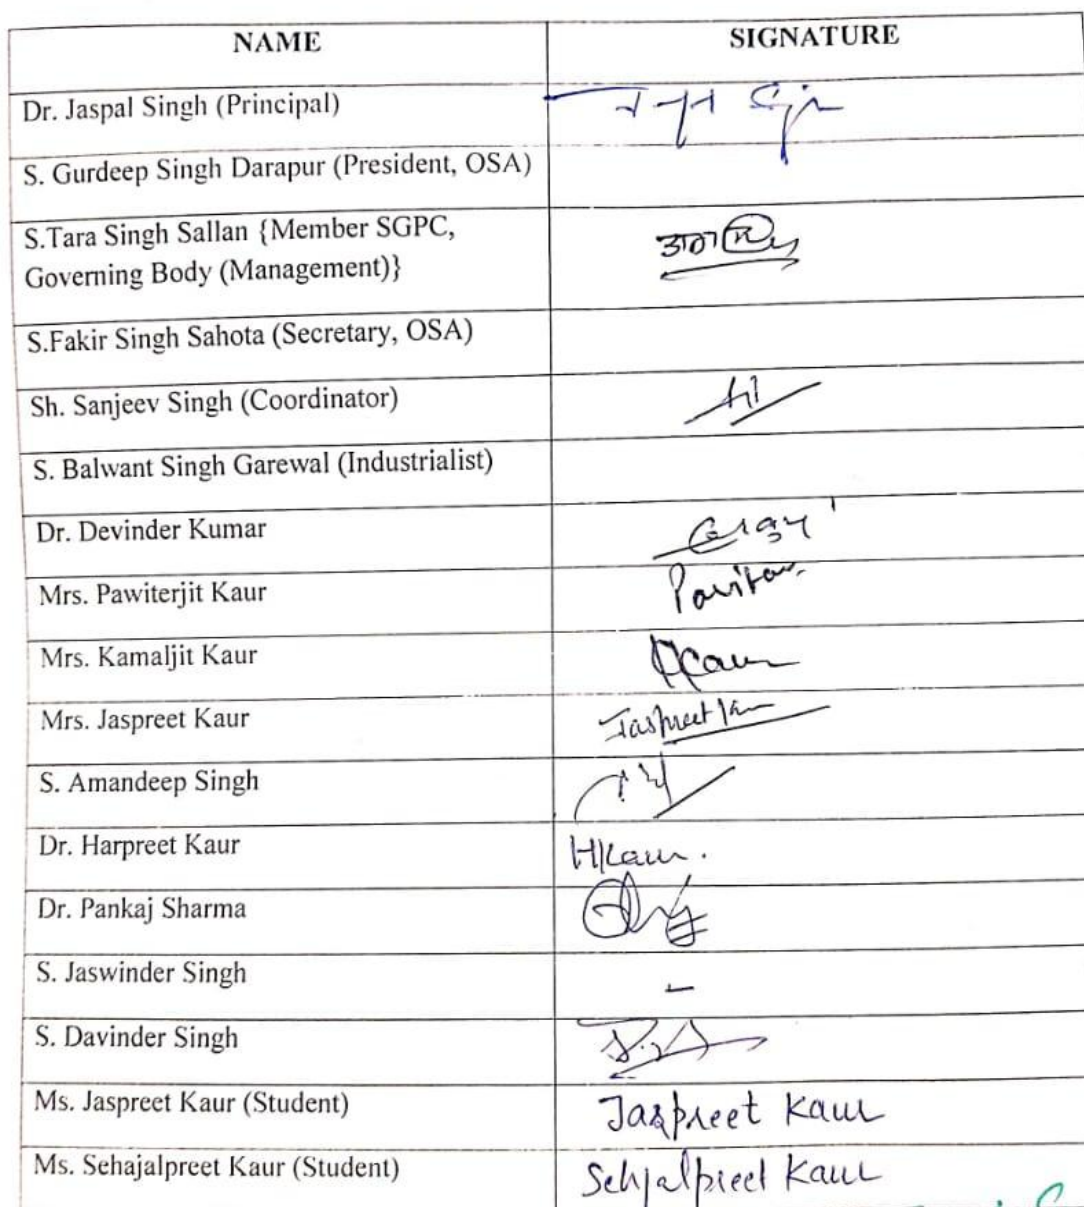 NAME SIGNATURE
Dr. Jaspal Singh (Principal)
S. Gurdeep Singh Darapur (President, OSA)
S.Tara Singh Sallan {Member SGPC,
Governing Body (Management)}
S.Fakir Singh Sahota (Secretary, OSA)
Sh. Sanjeev Singh (Coordinator)
S. Balwant Singh Garewal (Industrialist)
Dr. Devinder Kumar
Mrs. Pawiterjit Kaur
Mrs. Kamaljit Kaur
Mrs. Jaspreet Kaur Jaspreet
S. Amandeep Singh
Dr. Harpreet Kaur HKaur.
Dr. Pankaj Sharma
S. Jaswinder Singh -
S. Davinder Singh
Ms. Jaspreet Kaur (Student) Jaspreet Kaur
Ms. Sehajalpreet Kaur (Student) Sehjalpreet Kaur